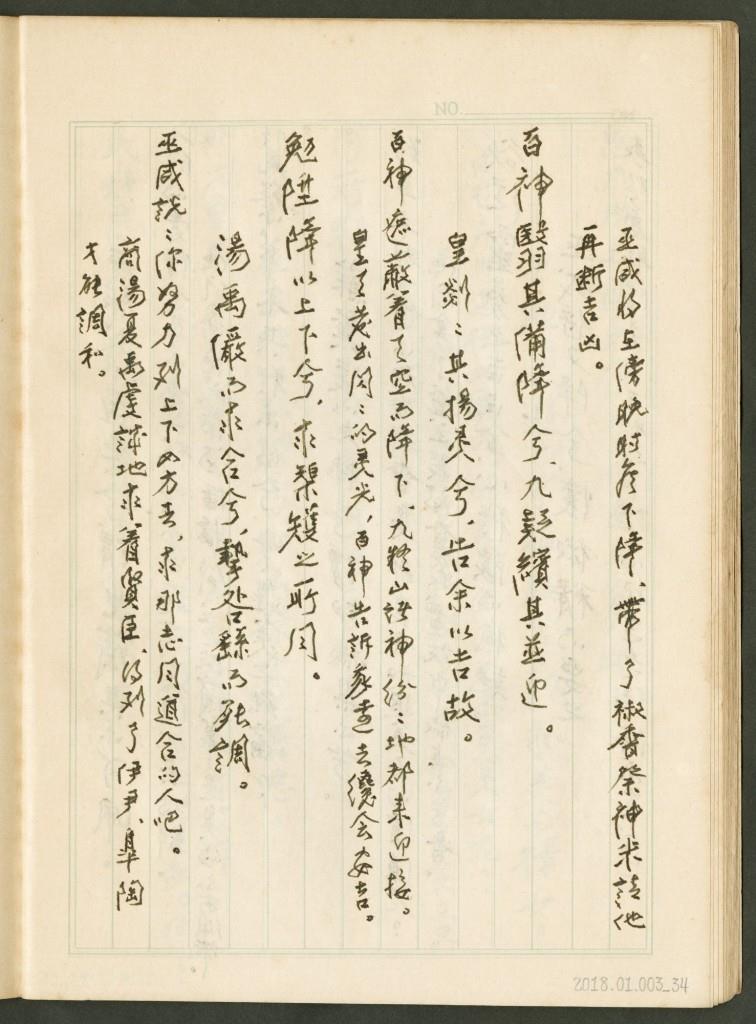 巫咸將在傍晚時候下降、帶了椒香祭神米請他
再斷吉凶。
百神翳其備降兮、九疑繽其並迎。
皇剡〻其揚灵兮、告余以吉故。
百神遮蔽着天空而降下、九疑山諸神紛〻地都来迎接。
皇天發出閃〻的灵光，百神告訴我遠去纔会安吉。
勉陞降以上下兮，求榘矱之所同。
湯禹儼而求合兮，摯咎繇而能調。
巫咸説〻你努力到上下四方去，求那志同道合的人吧。
商湯夏禹虔誠地求着賢臣、得到了伊尹、皐陶
才能調和。
NO.
2018.01.003_34